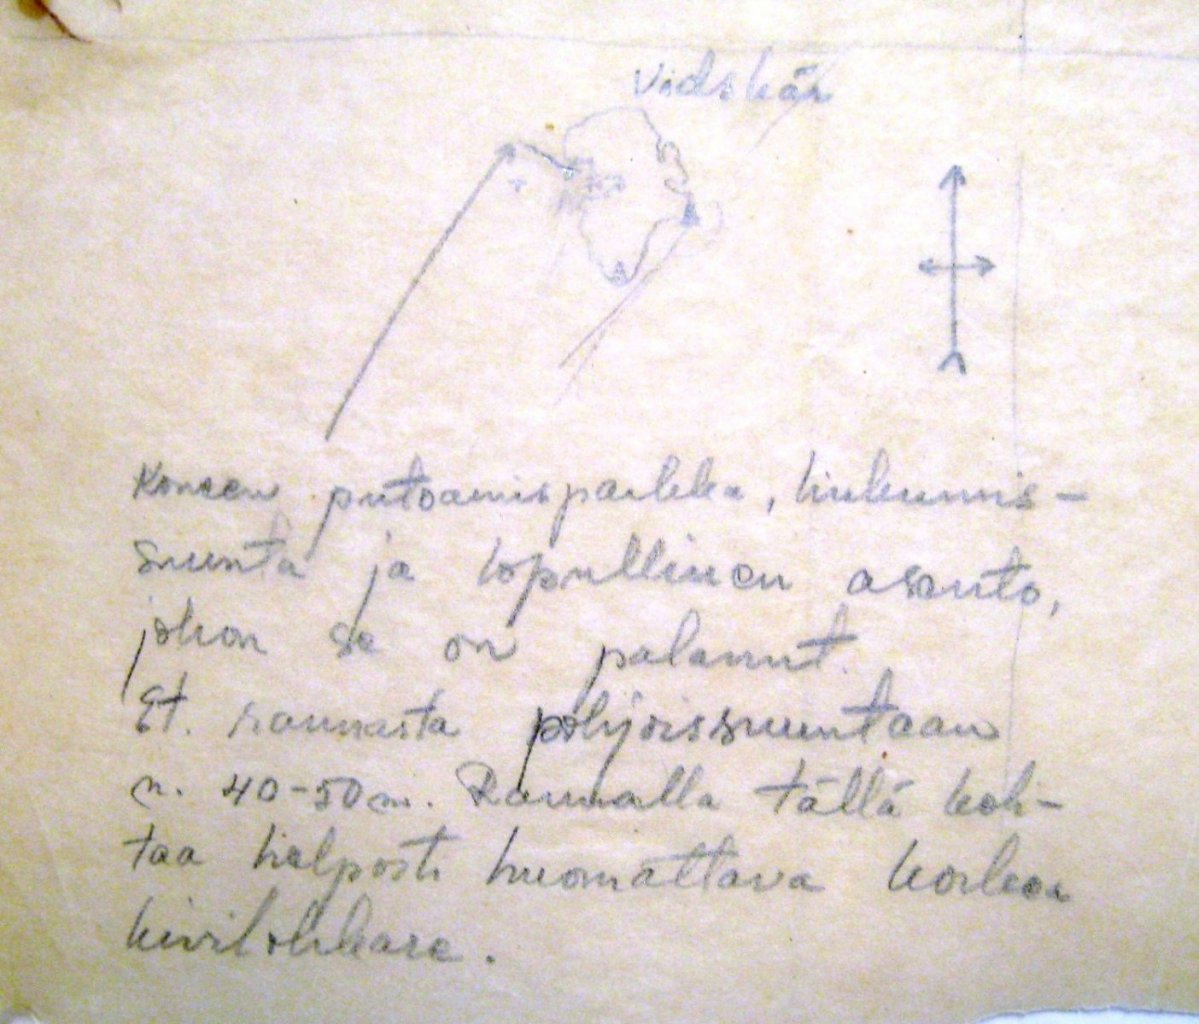 Vidskär
Koneen putoamispaikka, liukumis-
suunta ja lopullinen asento,
johon se on palanut.
Et. rannasta pohjoissuuntaan
n. 40-50 m. Rannalla tällä koh-
taa helposti huomattava korkea
kivilohkare.